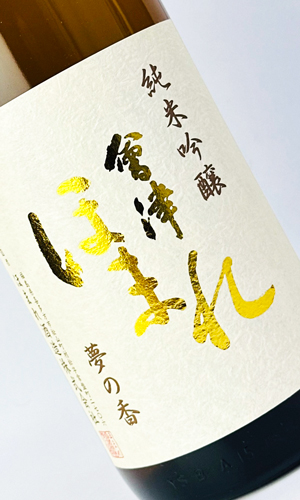 純米吟醸
會津
ほまれ
夢の香